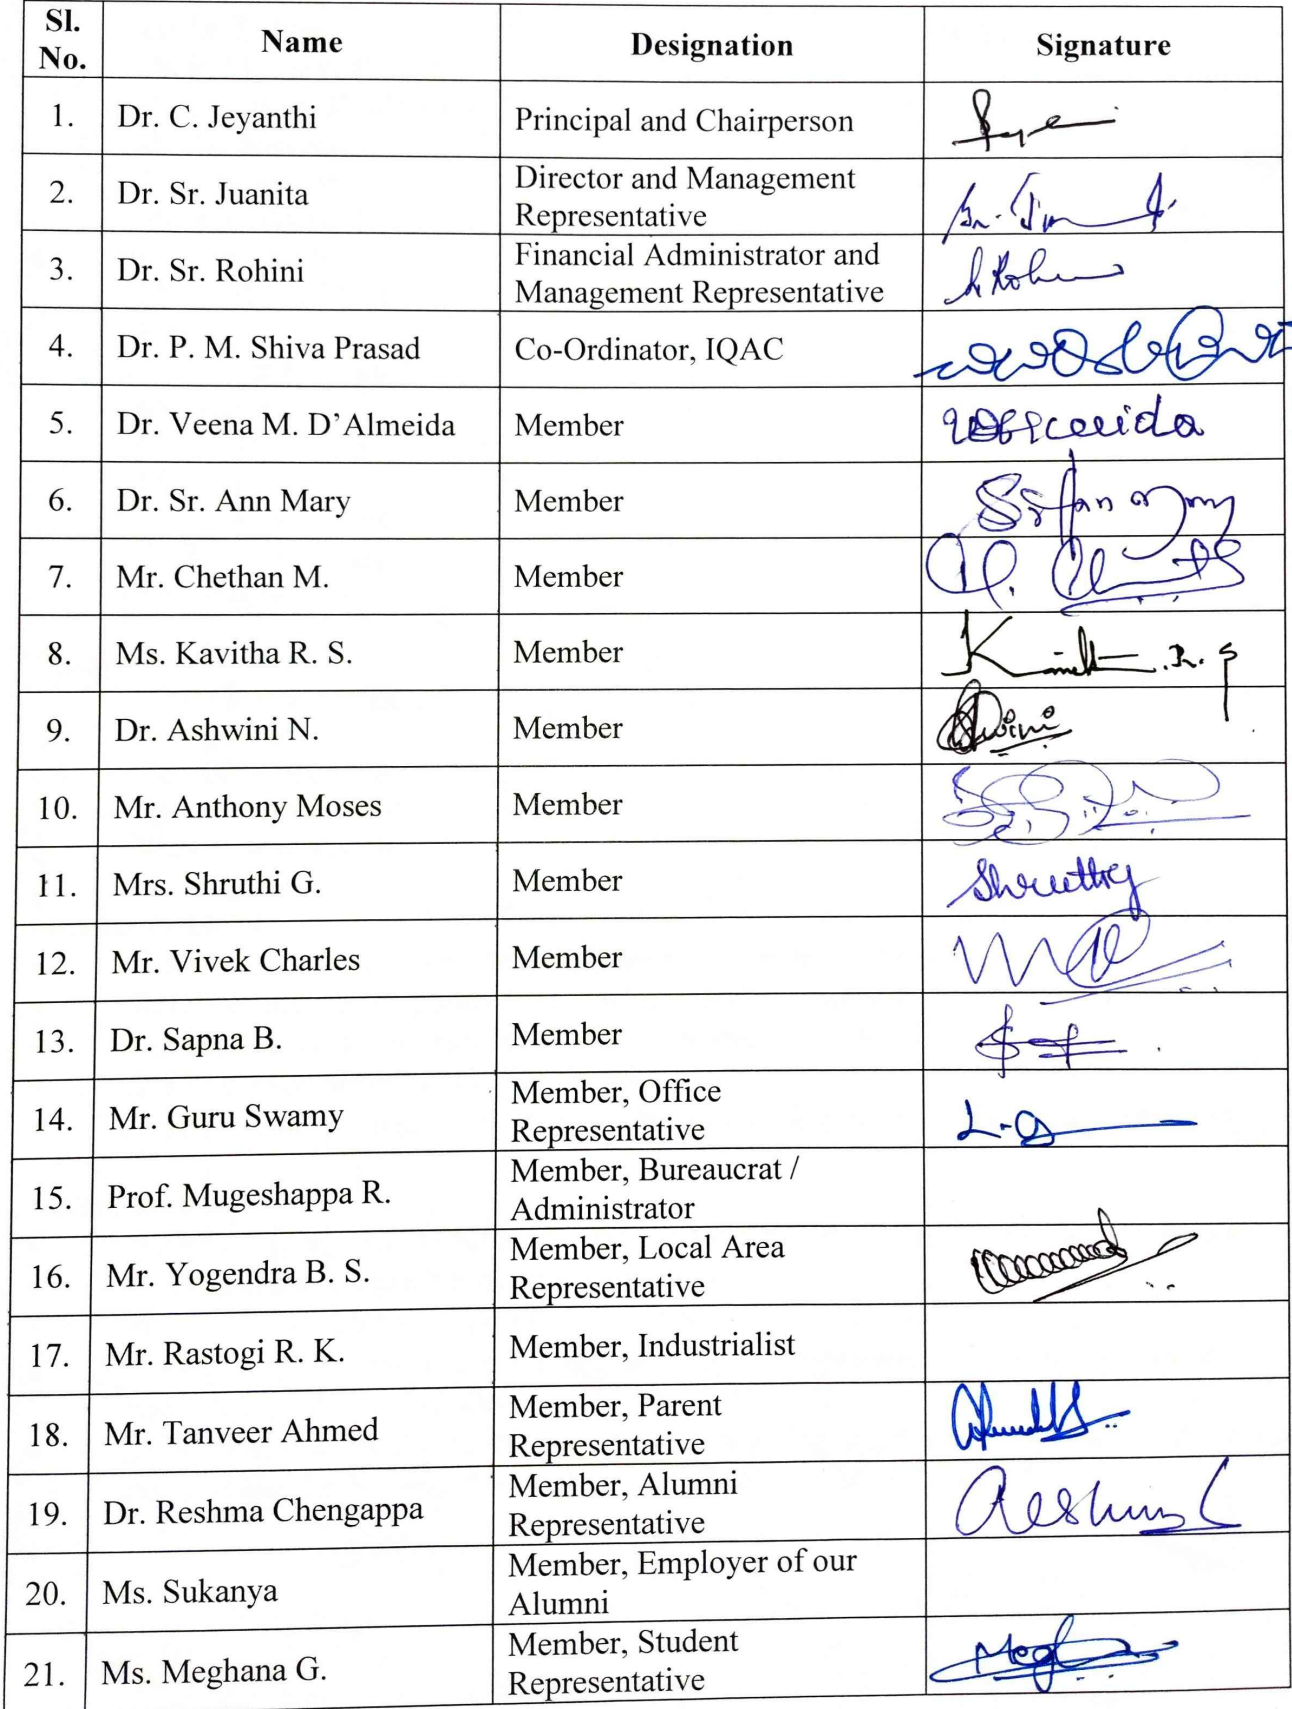 Sl. No. Name Designation Signature
1. Dr. C. Jeyanthi Principal and Chairperson
2. Dr. Sr. Juanita Director and Management
Representative
3. Dr. Sr. Rohini Financial Administrator and
Management Representative
4. Dr. P. M. Shiva Prasad Co-Ordinator, IQAC
5. Dr. Veena M. D’Almeida Member
6. Dr. Sr. Ann Mary Member
7. Mr. Chethan M. Member
8. Ms. Kavitha R. S. Member
9. Dr. Ashwini N. Member
10. Mr. Anthony Moses Member
11. Mrs. Shruthi G. Member
12. Mr. Vivek Charles Member
13. Dr. Sapna B. Member
14. Mr. Guru Swamy Member, Office
Representative
15. Prof. Mugeshappa R. Member, Bureaucrat /
Administrator
16. Mr. Yogendra B. S. Member, Local Area
Representative
17. Mr. Rastogi R. K. Member, Industrialist
18. Mr. Tanveer Ahmed Member, Parent
Representative
19. Dr. Reshma Chengappa Member, Alumni
Representative
20. Ms. Sukanya Member, Employer of our
Alumni
21. Ms. Meghana G. Member, Student
Representative